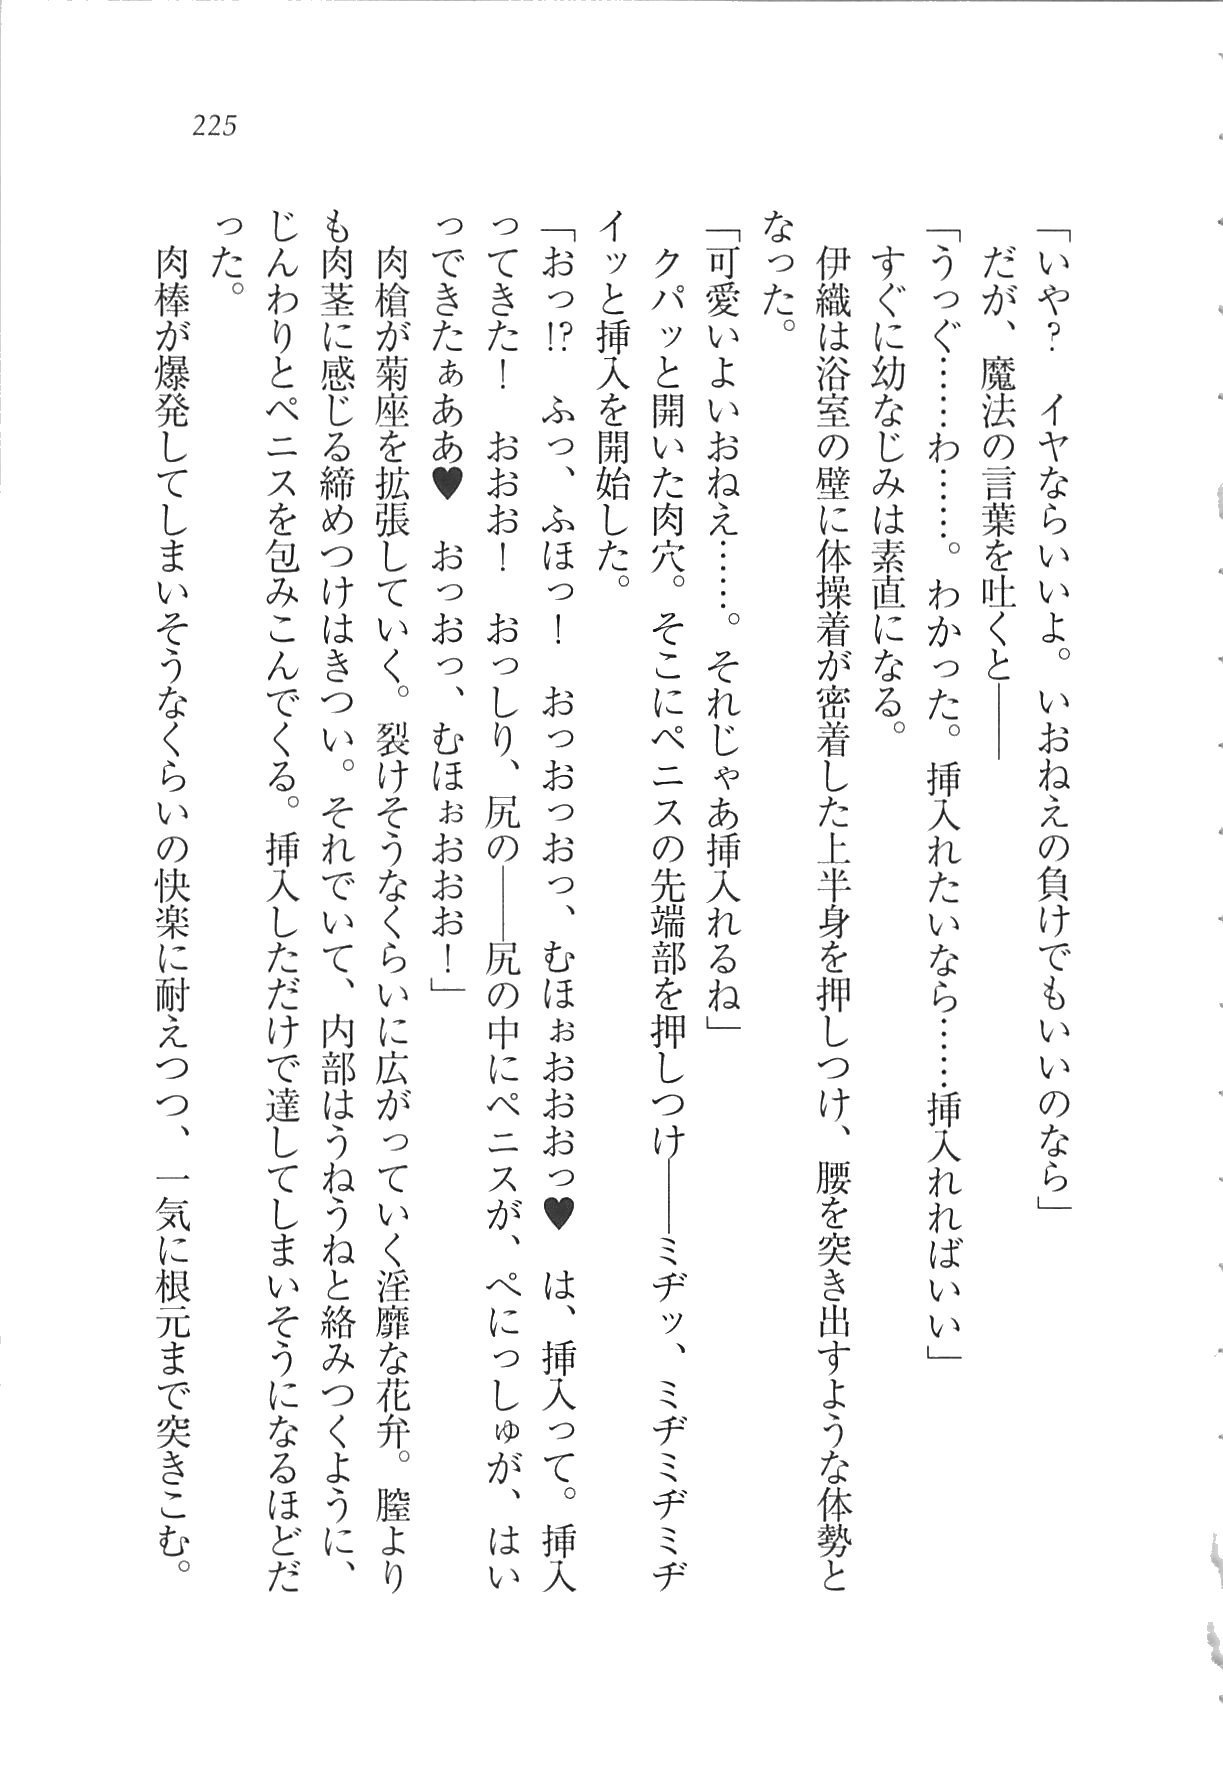 225
「いや? イヤならいいよ。いおねえの負けでもいいのなら」
だが、魔法の言葉を吐くと――
「うっぐ……わ……。わかった。挿入れたいなら……挿入れればいい」
すぐに幼なじみは素直になる。
伊織は浴室の壁に体操着が密着した上半身を押しつけ、腰を突き出すような体勢と
なった。
「可愛いよいおねえ……。それじゃあ挿入れるね」
クパッと開いた肉穴。そこにペニスの先端部を押しつけ――ミヂッ、ミヂミヂミヂ
イッと挿入を開始した。
「おっ!? ふっ、ふほっ! おっおっおっ、むほぉおおおっ♥ は、挿入って。挿入
ってきた! おおお! おっしり、尻の――尻の中にペニスが、ぺにっしゅが、はい
っできたぁああ♥ おっおっ、むほぉおおお!」
肉槍が菊座を拡張していく。裂けそうなくらいに広がっていく淫靡な花弁。膣より
も肉茎に感じる締めつけはきつい。それでいて、内部はうねうねと絡みつくように、
じんわりとペニスを包みこんでくる。挿入しただけで達してしまいそうになるほどだ
った。
肉棒が爆発してしまいそうなくらいの快楽に耐えつつ、一気に根元まで突きこむ。